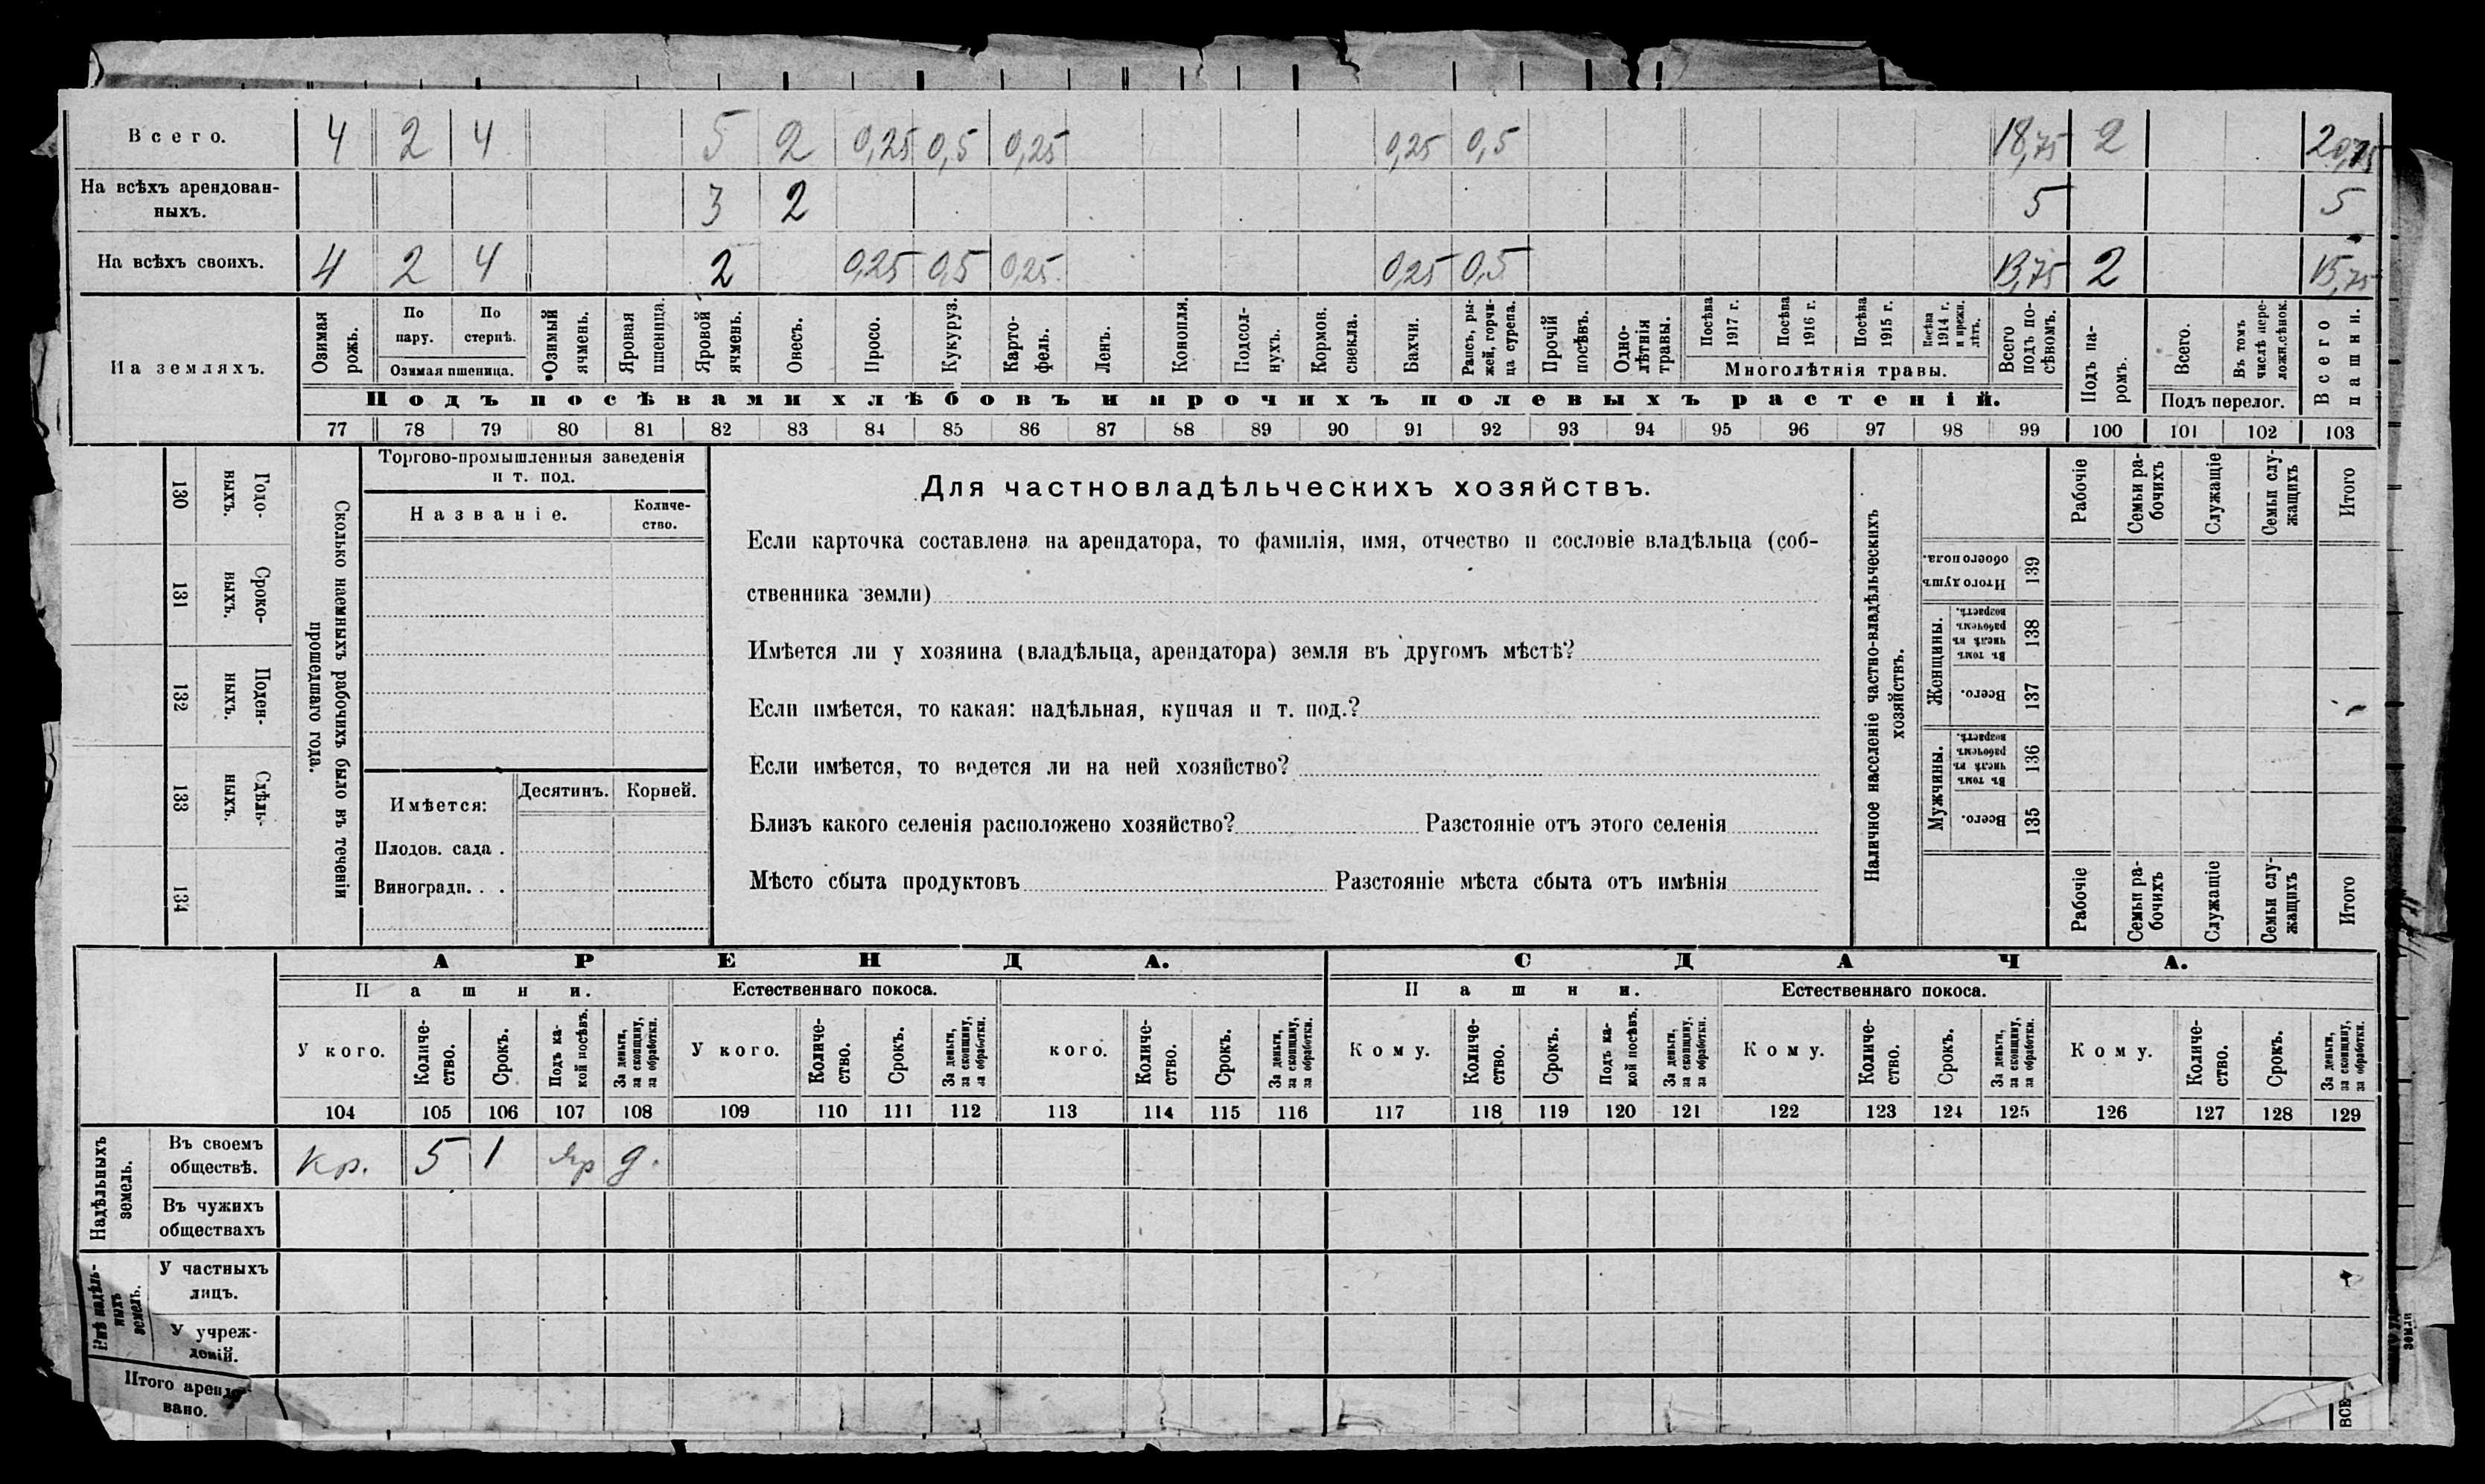 Всего. 4 2 4 5 2 0,25 0,5 0,25 0,25 0,5 18,75 2 20,75
На всѣхъ арендован-
ныхъ. 3 2 5 5
На всѣхъ своихъ. 4 2 4 2 0,25 0,5 0,25 0,25 0,5 13,75 2 15,75
На земляхъ.
Озимая
рожь.
По
пару.
По
стернѣ.
Озимая пшеница.
Озимый
ячмень.
Яровая
пшеница.
Яровой
ячмень.
Овесъ.
Просо.
Кукуруз.
Карто-
фель.
Ленъ.
Конопля.
Подсол-
нухъ.
Кормов.
свекла.
Бахчи.
Рапсъ, ры-
жей, горчи-
ца сурепа.
Прочій
посѣвъ.
Одно-
лѣтнія
травы.
Посѣва
1917 г.
Посѣва
1916 г.
Посѣва
1915 г.
Посѣва
1914 г.
и прежн.
лѣтъ.
Многолѣтнія травы.
Всего
подъ по-
сѣвомъ.
Подъ посѣвами хлѣбовъ и прочихъ полевыхъ растеній.
Подъ па-
ромъ.
Всего.
Въ томъ
числѣ пере-
ложн.сѣнок.
Подъ перелог.
Всего
пашни.
77 78 79 80 81 82 83 84 85 86 87 88 89 90 91 92 93 94 95 96 97 98 99 100 101 102 103
Годо-
ныхъ.
130
Сроко-
ныхъ.
131
Поден-
ныхъ.
132
Сдѣль-
ныхъ.
133
134
Сколько наемныхъ рабочихъ было въ теченіи
прошедшаго года.
Торгово-промышленныя заведенія
и т. под.
Названіе.
Количе-
ство.
Имѣется:
Десятинъ.
Корней.
Плодов. сада .
Виноградн. . .
Для частновладѣльческихъ хозяйствъ.
Если карточка составлена на арендатора, то фамилія, имя, отчество и сословіе владѣльца (соб-
ственника земли)
Имѣется ли у хозяина (владѣльца, арендатора) земля въ другомъ мѣстѣ?
Если имѣется, то какая: надѣльная, купчая и т. под.?
Если имѣется, то ведется ли на ней хозяйство?
Близъ какого селенія расположено хозяйство? Разстояніе отъ этого селенія
Мѣсто сбыта продуктовъ Разстояніе мѣста сбыта отъ имѣнія
Наличное населеніе частно-владѣльческихъ
хозяйствъ.
Рабочіе
Семьи ра-
бочихъ
Служащіе
Семьи слу-
жащихъ
Итого
Итого душъ
обоего пола.
139
Женщины.
Въ томъ
числѣ въ
рабочемъ
возрастѣ.
138
Всего.
137
Мужчины.
Въ томъ
числѣ въ
рабочемъ
возрастѣ.
136
Всего.
135
Рабочіе
Семьи ра-
бочихъ
Служащіе
Семьи слу-
жащихъ
Итого
АРЕНДА. СДАЧА.
Пашни. Естественнаго покоса. Пашни. Естественнаго покоса.
У кого.
Количе-
ство.
Срокъ.
Подъ ка-
кой посѣвъ.
За деньги,
за скопщину,
за обработки.
У кого.
Количе-
ство.
Срокъ.
За деньги,
за скопщину,
за обработки.
кого.
Количе-
ство.
Срокъ.
За деньги,
за скопщину,
за обработки.
Кому.
Количе-
ство.
Срокъ.
Подъ ка-
кой посѣвъ.
За деньги,
за скопщину,
за обработки.
Кому.
Количе-
ство.
Срокъ.
За деньги,
за скопщину,
за обработки.
Кому.
Количе-
ство.
Срокъ.
За деньги,
за скопщину,
за обработки.
104 105 106 107 108 109 110 111 112 113 114 115 116 117 118 119 120 121 122 123 124 125 126 127 128 129
Надѣльныхъ
земель.
Въ своемъ
обществѣ. кр. 5 1 яр д.
Въ чужихъ
обществахъ
Внѣ надѣль-
ныхъ
земель.
У частныхъ
лицъ.
У учреж-
деній.
Итого арендо-
вано.
ВСЕ
земли